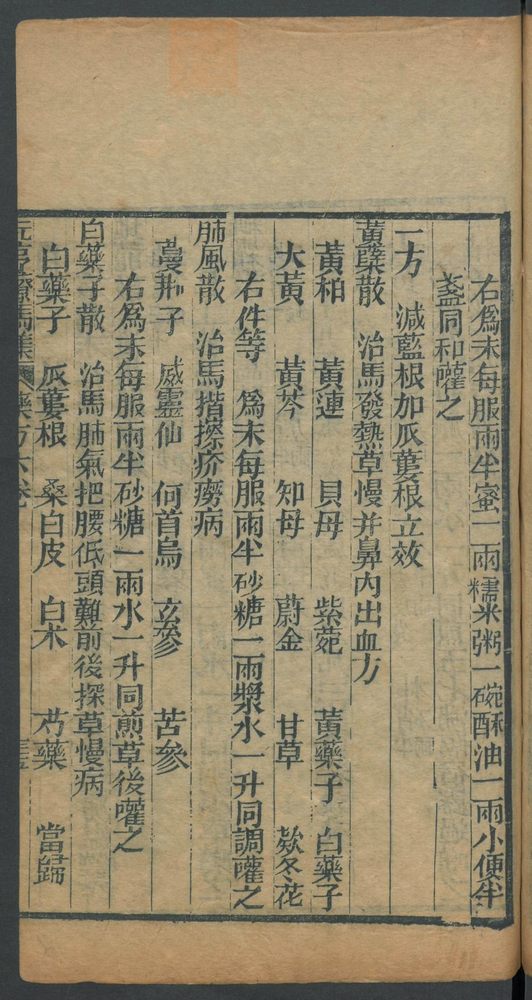 右爲末每服兩半蜜二兩糯米粥一碗酥油一兩小便半
盞同和嚾之
一方　減藍根加瓜蔞根立效
黃蘗散　治馬發熱草慢并鼻內出血方
黃柏　黃連　貝母　紫菀　黃藥子　白藥子
大黃　黃芩　知母　蔚金　甘草　欵冬花
右件等　爲末每服兩半砂糖二兩漿水一升同調嚾之
肺風散　治馬揩擦疥癆病
蔓荆子　威靈仙　何首烏　玄參　苦參
右爲末每服兩半砂糖一兩水一升同煎草後嚾之
白藥子散　治馬肺氣把腰低頭難前後探草慢病
白藥子　瓜蔞根　桑白皮　白朮　芍藥　當歸
療馬集　藥方六卷